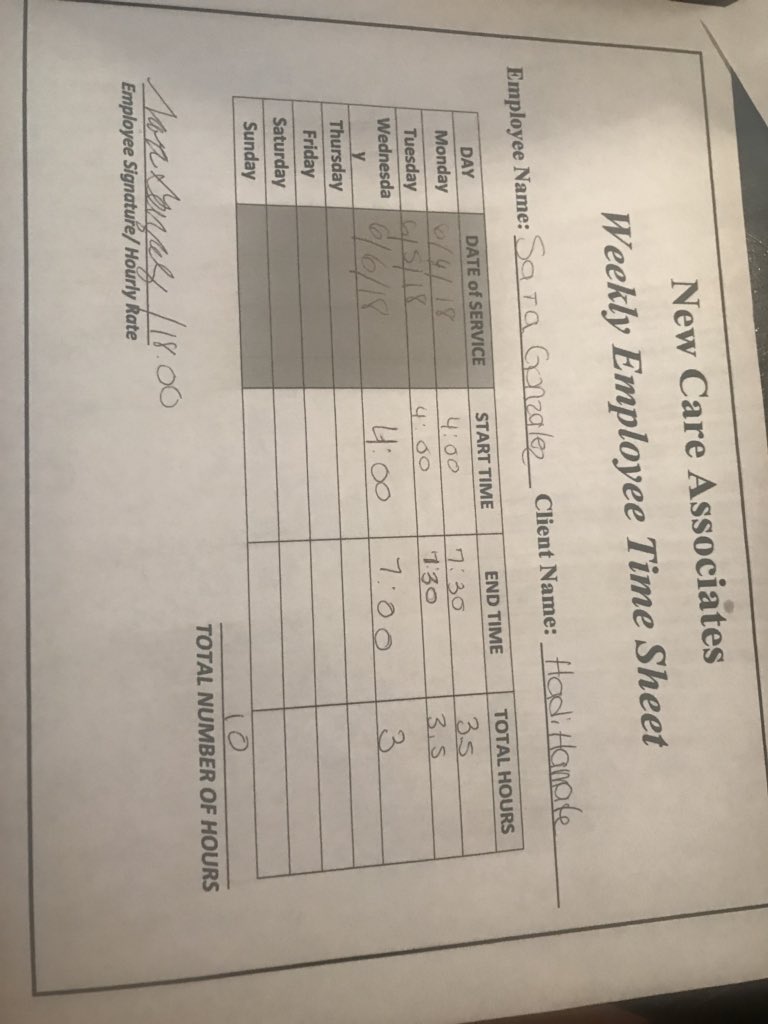 New Care Associates
Weekly Employee Time Sheet
Employee Name: Sara Gonzalez Client Name: Hadi Hamate
DAY DATE of SERVICE START TIME END TIME TOTAL HOURS
Monday 6/4/18 4:00 7:30 3.5
Tuesday 6/5/18 4:00 7:30 3.5
Wednesda
y 6/6/18 4:00 7:00 3
Thursday
Friday
Saturday
Sunday
10
TOTAL NUMBER OF HOURS
/18.00
Employee Signature/ Hourly Rate